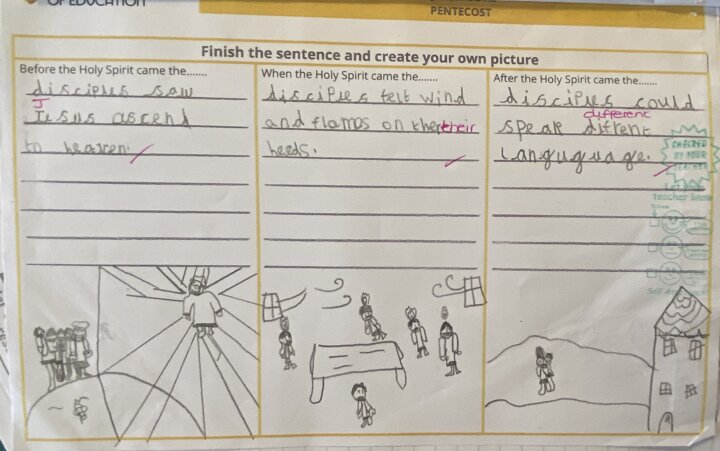 OF EDUCATION
PENTECOST
Finish the sentence and create your own picture
Before the Holy Spirit came the.......
disciples saw
J
Jesus ascend
to heaven.
When the Holy Spirit came the.......
disciples felt wind
and flames on ther their
heeds.
After the Holy Spirit came the.......
disciples could
different
speak difrent
languguage.
CHECKED
BY YOUR
teacher know